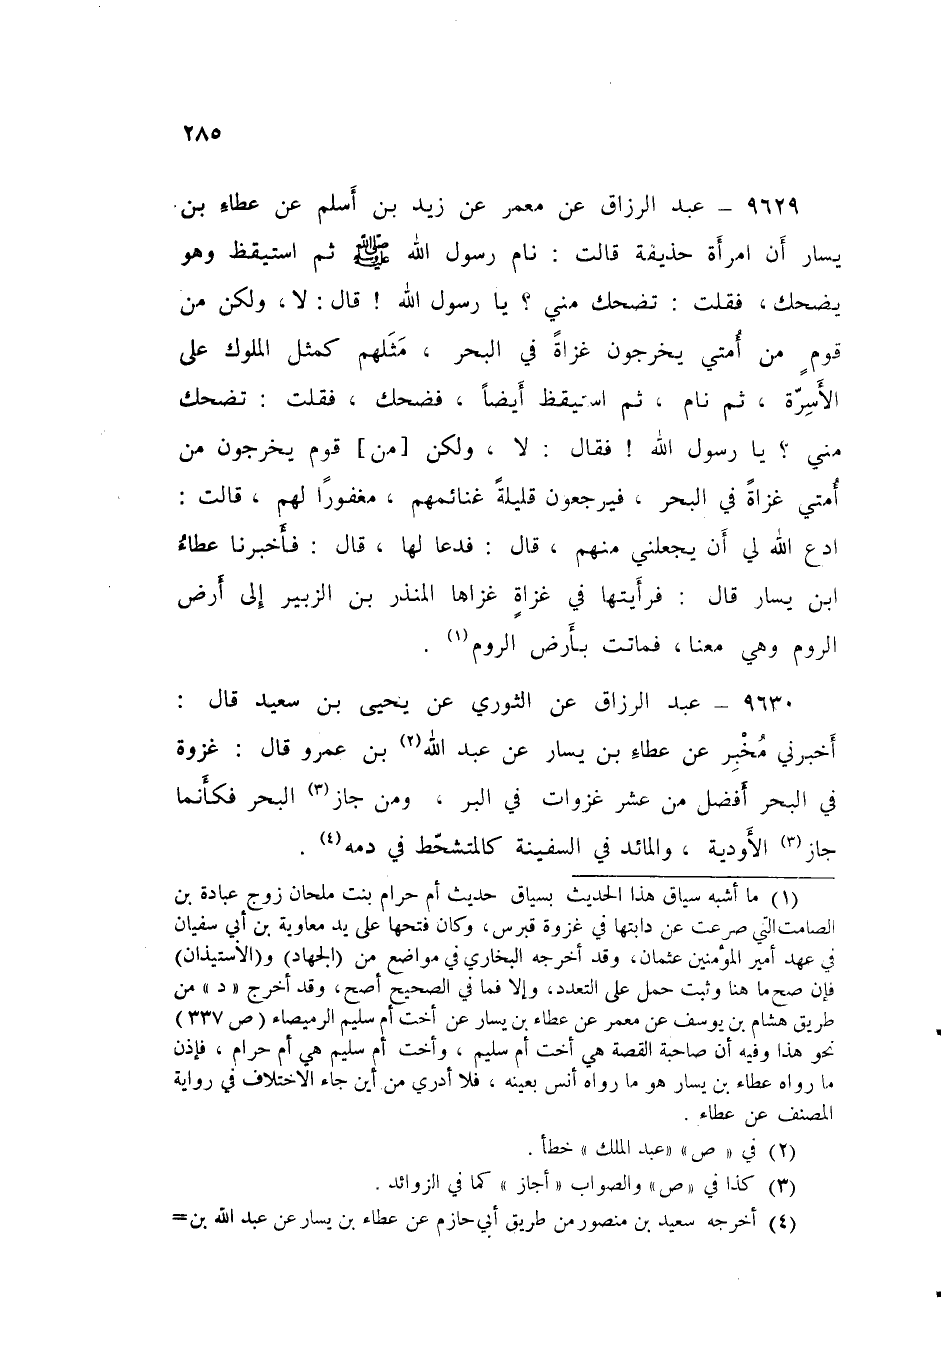 ٢٨٥
٩٦٢٩ ـ عبد الرزاق عن معمر عن زيد بن أَسلم عن عطاءِ بن
يسار أَن امرأَة حذيفة قالت : نام رسول الله ﷺ ثم استيقظ وهو
يضحك ، فقلت : تضحك مني ؟ يا رسول الله ! قال : لا ، ولكن من
قومٍ من أُمتي يخرجون غزاةً في البحر ، مَثَلهم كمثل الملوك على
الأَسِرّة ، ثم نام ، ثم استيقظ أَيضاً ، فضحك ، فقلت : تضحك
مني ؟ يا رسول الله ! فقال : لا ، ولكن [من] قوم يخرجون من
أُمتي غزاةً في البحر ، فيرجعون قليلةً غنائمهم ، مغفورًا لهم ، قالت :
ادع الله لي أَن يجعلني منهم ، قال : فدعا لها ، قال : فأَخبرنا عطاءُ
ابن يسار قال : فرأَيتها في غزاةٍ غزاها المنذر بن الزبير إلى أَرض
الروم وهي معنا ، فماتت بأَرض الروم(١) .
٩٦٣٠ ـ عبد الرزاق عن الثوري عن يحيى بن سعيد قال :
أَخبرني مُخْبِر عن عطاء بن يسار عن عبد الله(٢) بن عمرو قال : غزوة
في البحر أَفضل من عشر غزوات في البر ، ومن جاز(٣) البحر فكأَنما
جاز(٣) الأَودية ، والمائد في السفينة كالمتشحّط في دمه(٤) .
(١) ما أشبه سياق هذا الحديث بسياق حديث أم حرام بنت ملحان زوج عبادة بن
الصامت التي صرعت عن دابتها في غزوة قبرس، وكان فتحها على يد معاوية بن أبي سفيان
في عهد أمير المؤمنين عثمان، وقد أخرجه البخاري في مواضع من (الجهاد) و(الأستيذان)
فإن صح ما هنا وثبت حمل على التعدد، وإلا فما في الصحيح أصح، وقد أخرج « د » من
طريق هشام بن يوسف عن معمر عن عطاء بن يسار عن أخت أم سليم الرميصاء (ص ٣٣٧)
نحو هذا وفيه أن صاحبة القصة هي أخت أم سليم ، وأخت أم سليم هي أم حرام ، فإذن
ما رواه عطاء بن يسار هو ما رواه أنس بعينه ، فلا أدري من أين جاء الاختلاف في رواية
المصنف عن عطاء .
(٢) في « ص» «عبد الملك » خطأ .
(٣) كذا في «ص» والصواب « أجاز » كما في الزوائد .
(٤) أخرجه سعيد بن منصور من طريق أبي حازم عن عطاء بن يسار عن عبد الله بن=